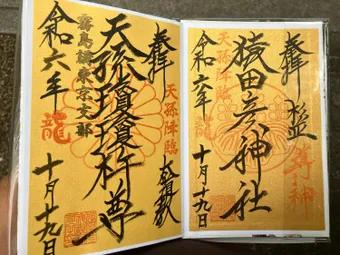 奉拝
天孫降臨
猿田彦神社
令和六年
龍
十月十九日
奉拝
天孫降臨
霧島講東京支部
天孫瓊瓊杵尊
令和六年
龍
十月十九日